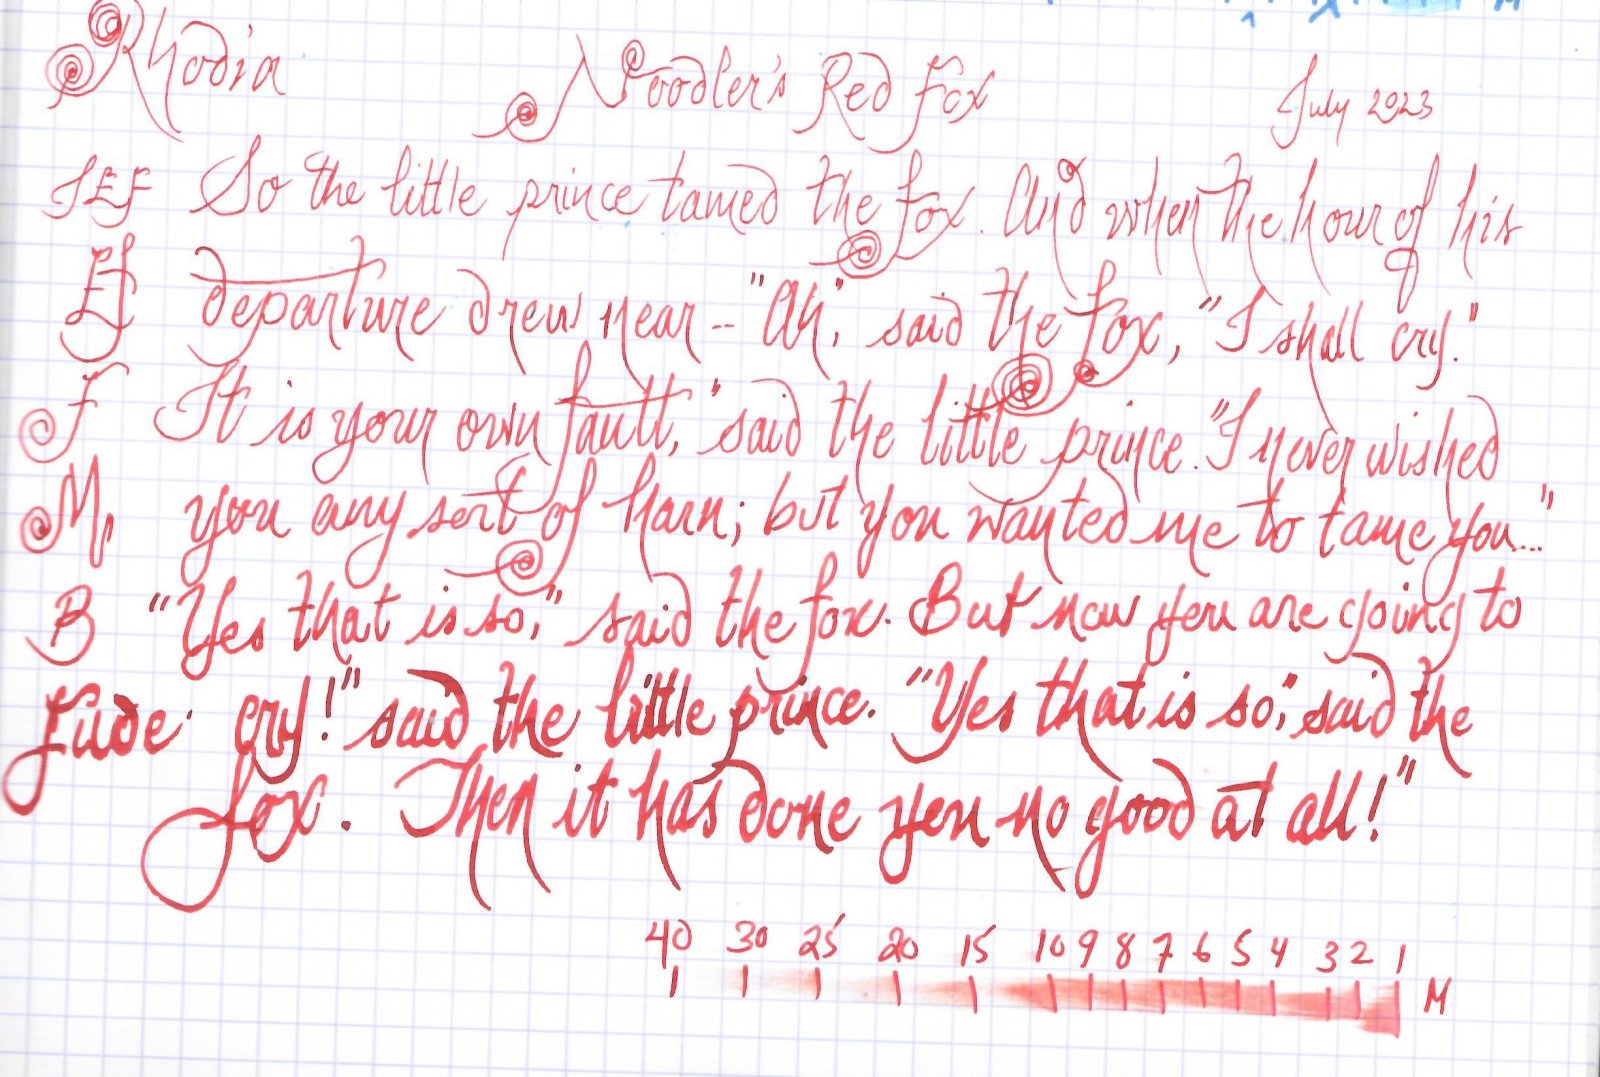 Rhodia Noodler's Red Fox July 2023
JEF So the little prince tamed the fox. And when the hour of his
EF departure drew near -- "Ah", said the fox, "I shall cry."
F It is your own fault," said the little prince. "I never wished
M you any sort of harm; but you wanted me to tame you..."
B "Yes that is so," said the fox. But now you are going to
Fude cry!" said the little prince. "Yes that is so," said the
fox. Then it has done you no good at all!"
40 30 25 20 15 10 9 8 7 6 5 4 3 2 1
M